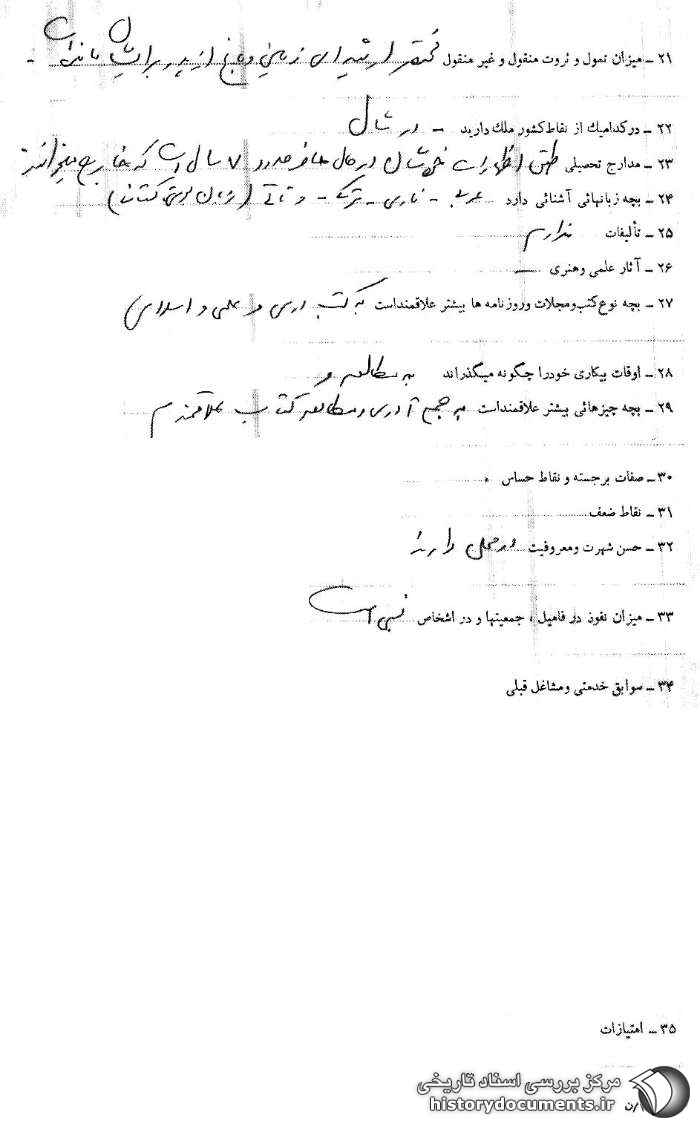 ۲۱ ـ میزان تمول و ثروت منقول و غیر منقول مختصر ارثیه ای زمین و باغ از پدر برایشان مانده است -
۲۲ ـ درکدامیك از نقاط کشور ملك دارید - در شال
۲۳ ـ مدارج تحصیلی طبق اظهارات خودشان در حال حاضر حدود ۷ سال است که خارج میخوانند
۲۴ ـ بچه زبانهائی آشنائی دارد عربی - فارسی - ترکی - و تاتی (زبان بومی
۲۵ ـ تألیفات ندارم
۲۶ ـ آثار علمی وهنری —
۲۷ ـ بچه نوع کتب ومجلات وروزنامه ها بیشتر علاقمنداست به کتب درسی و علمی و اسلامی
۲۸ ـ اوقات بیکاری خودرا چگونه میگذراند به مطالعه و
۲۹ ـ بچه چیزهائی بیشتر علاقمنداست به جمع آوری و مطالعه کتاب علاقمندم
۳۰ ـ صفات برجسته و نقاط حساس
۳۱ ـ نقاط ضعف
۳۲ ـ حسن شهرت ومعروفیت در محل دارند
۳۳ ـ میزان نفوذ در فامیل ، جمعیتها و در اشخاص نسبی است
۳۴ ـ سوابق خدمتی ومشاغل قبلی
۳۵ ـ امتیازات
مرکز بررسی اسناد تاریخی
historydocuments.ir